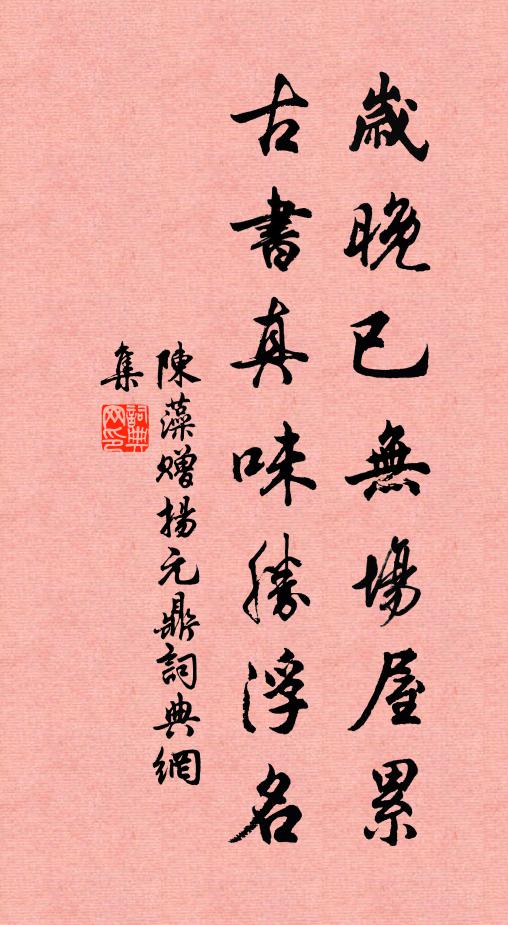 歲晚已無場屋累
古書真味勝浮名
陳藻贈揚元鼎詞典網
集
詞典網印